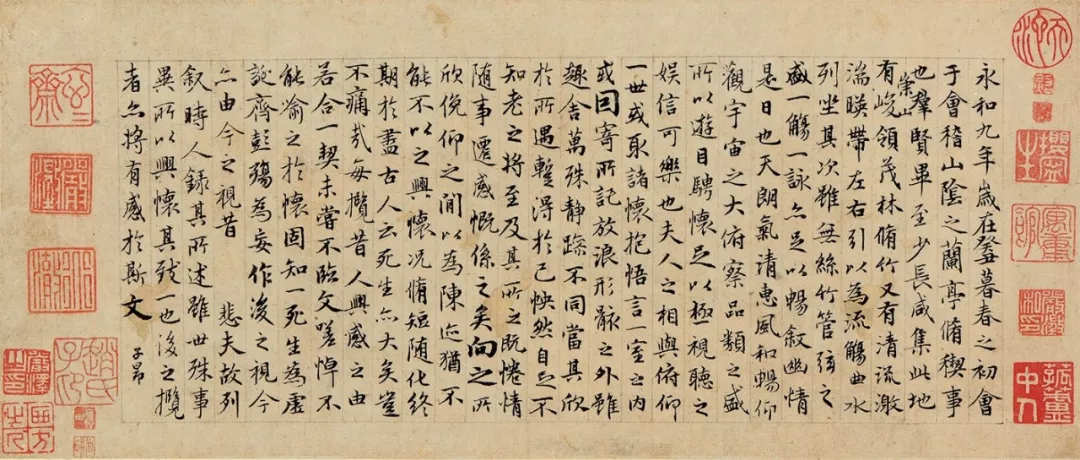 永和九年歲在癸暮春之初會
于會稽山陰之蘭亭脩稧事
也羣賢畢至少長咸集此地
有崇山峻領茂林脩竹又有清流激
湍暎帶左右引以為流觴曲水
列坐其次雖無絲竹管弦之
盛一觴一詠亦足以暢敘幽情
是日也天朗氣清惠風和暢仰
觀宇宙之大俯察品類之盛
所以遊目騁懷足以極視聽之
娛信可樂也夫人之相與俯仰
一世或取諸懷抱悟言一室之內
或因寄所託放浪形骸之外雖
趣舍萬殊静躁不同當其欣
於所遇蹔得於己怏然自足不
知老之將至及其所之既惓情
随事遷感慨係之矣向之所
欣俛仰之閒以為陳迹猶不
能不以之興懷況脩短随化終
期於盡古人云死生亦大矣豈
不痛哉每攬昔人興感之由
若合一契未嘗不臨文嗟悼不
能喻之於懷固知一死生為虛
誕齊彭殤為妄作後之視今
亦由今之視昔 悲夫故列
敘時人錄其所述雖世殊事
異所以興懷其致一也後之攬
者亦將有感於斯文
子昂
趙氏子昂